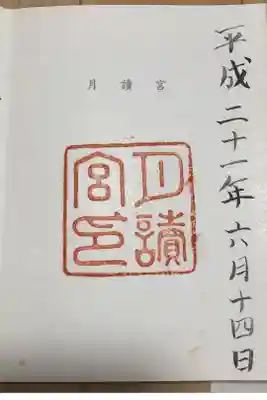 平成二十一年六月十四日
月讀宮
月讀宮印